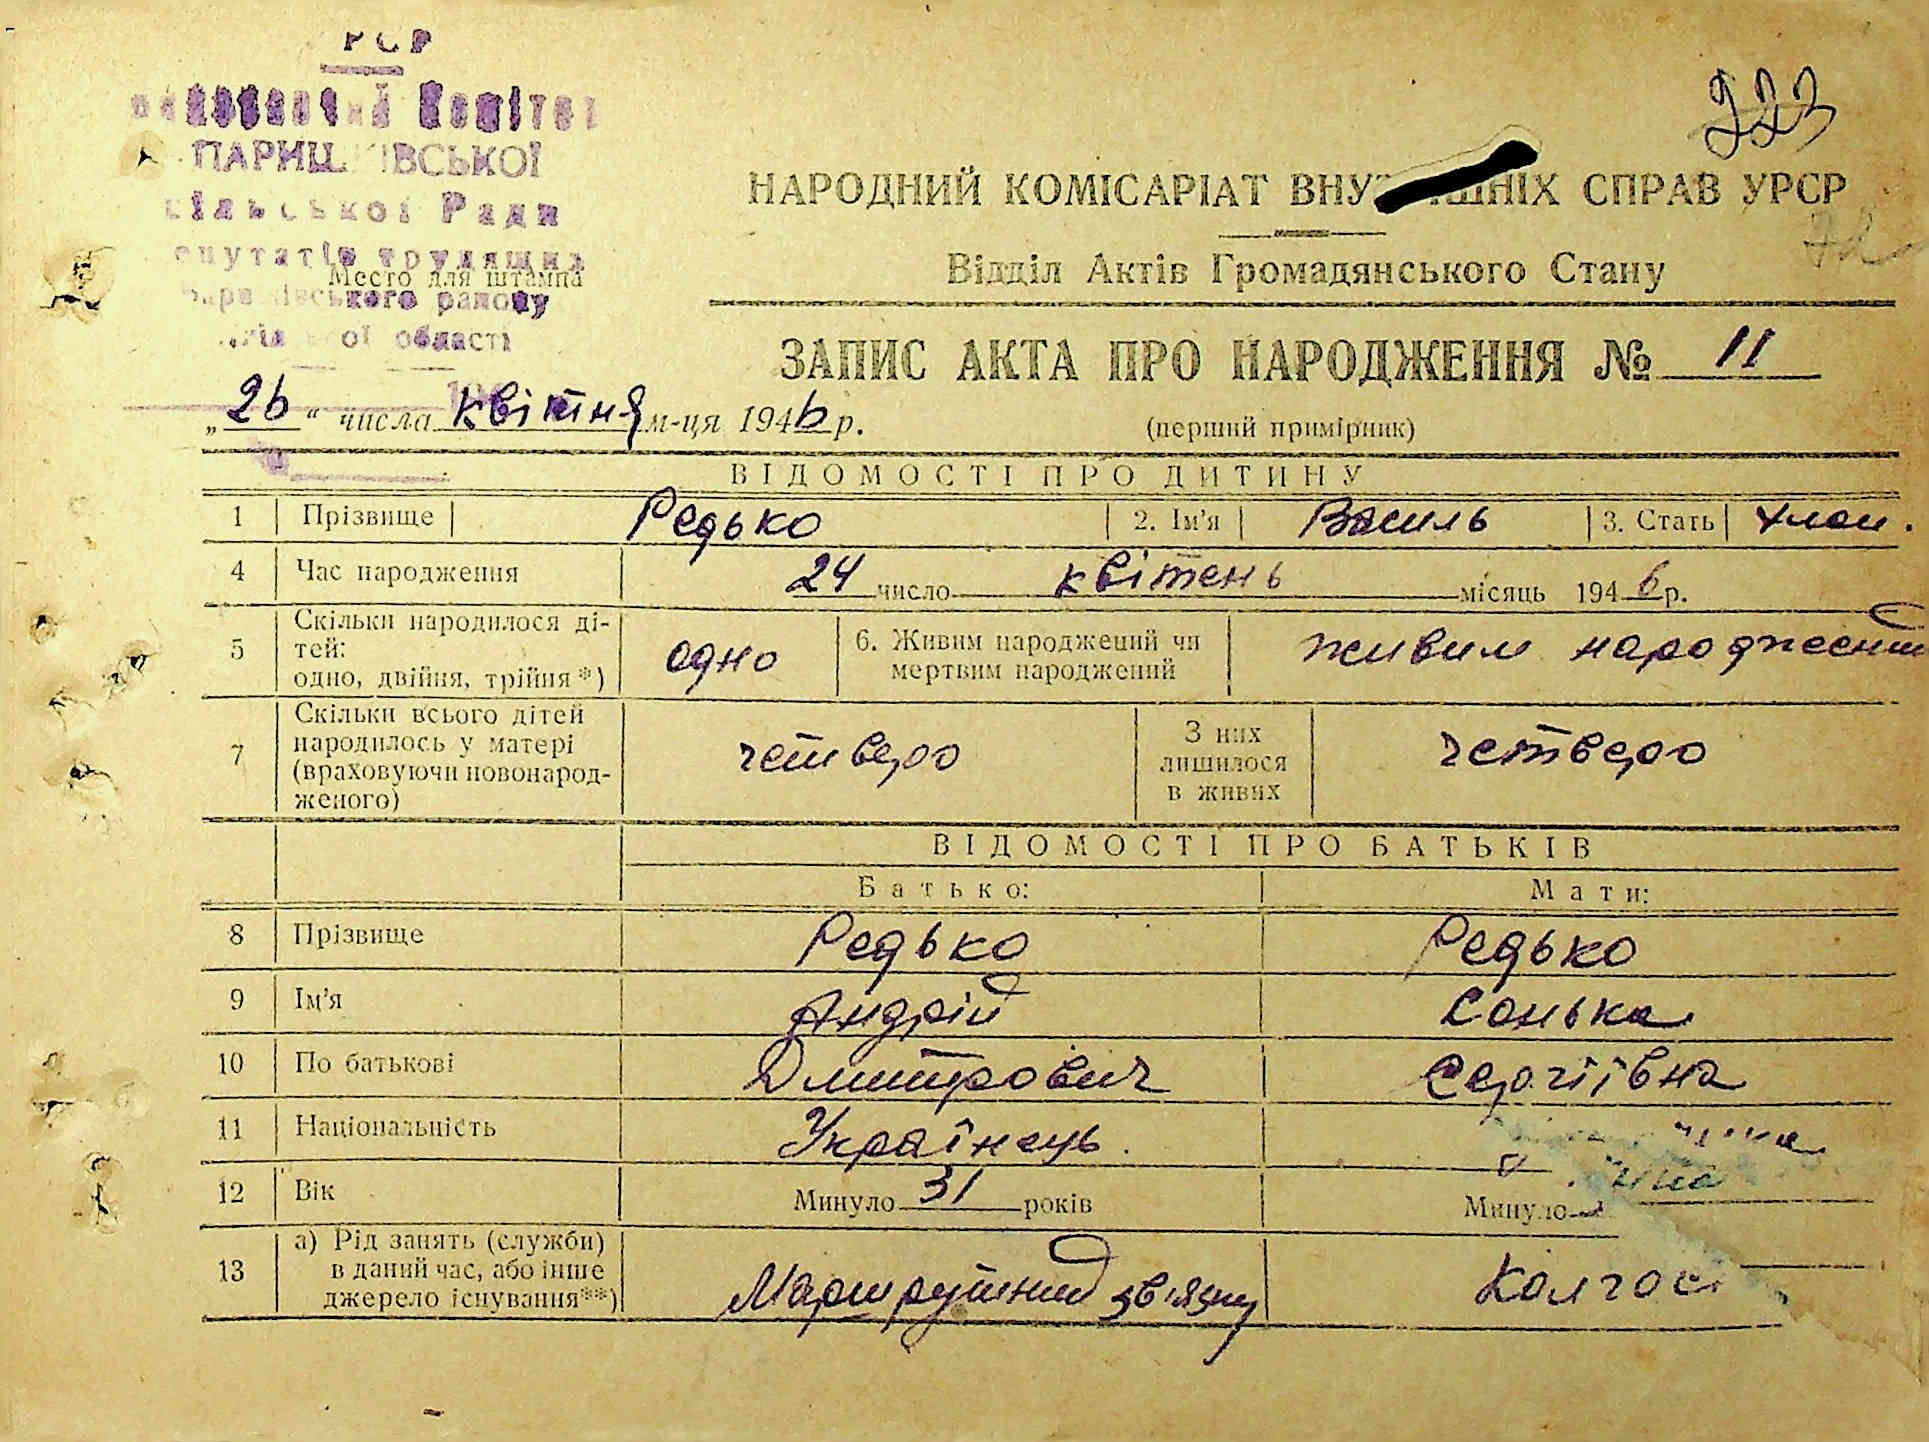 РСР
Комітет
ПАРИШКІВСЬКОЇ
сільської Ради
депутатів трудящих
Место для штампа
району
області
223
72
НАРОДНИЙ КОМІСАРІАТ ВНУТРІШНІХ СПРАВ УРСР
Відділ Актів Громадянського Стану
ЗАПИС АКТА ПРО НАРОДЖЕННЯ № 11
„26“ числа квітня м-ця 1946 р.
(перший примірник)
ВІДОМОСТІ ПРО ДИТИНУ
1 Прізвище Редько 2. Ім'я Василь 3. Стать хлоп.
4 Час народження 24 число квітень місяць 1946 р.
5 Скільки народилося ді-
тей:
одно, двійня, трійня*) одно 6. Живим народжений чи
мертвим народжений живим народжений
7 Скільки всього дітей
народилось у матері
(враховуючи новонарод-
женого) четверо З них
лишилося
в живих четверо
ВІДОМОСТІ ПРО БАТЬКІВ
Батько: Мати:
8 Прізвище Редько Редько
9 Ім'я Андрій Сонька
10 По батькові Дмитрович Сергіївна
11 Національність Українець.
12 Вік Минуло 31 років Минуло
13 а) Рід занять (служби)
в даний час, або інше
джерело існування**) Маршрутний звязку Колгос